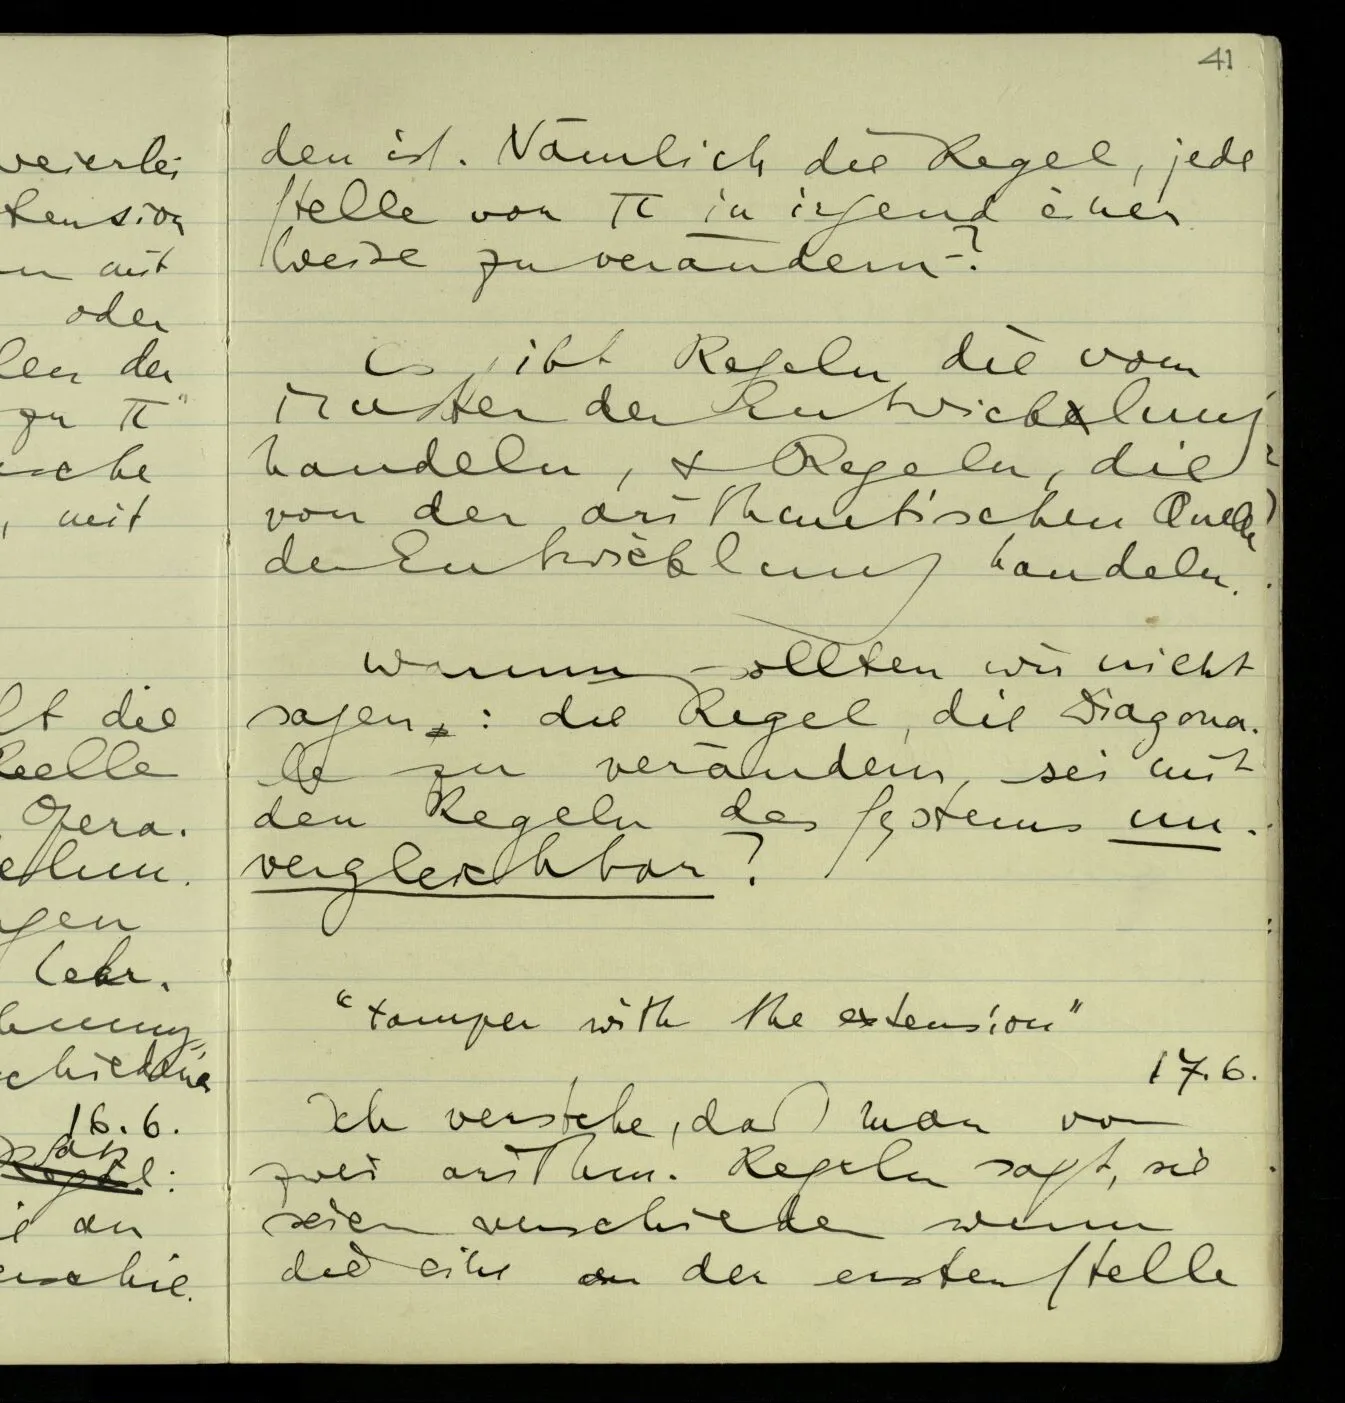 41
den ist. Nämlich die Regel, jede
Stelle von π in irgend einer
Weise zu verändern–?
Es gibt Regeln die vom
Muster der Entwicklung
handeln, & Regeln, die
von der arithmetischen Quelle
der Entwicklung handeln.
Warum sollten wir nicht
sagen: die Regel, die Diagona-
le zu verändern, sei mit
den Regeln des Systems un-
vergleichbar?
"tamper with the extension"
17.6.
Ich verstehe, daß man von
zwei arithm. Regeln sagt, sie
seien verschieden wenn
die eine an der ersten Stelle
weierlei
tension
mit
oder
len der
zu π"
sche
, mit
lt die
Opera-
gen
Lehr-
16.6.
Satz
Regel:
an
schie-